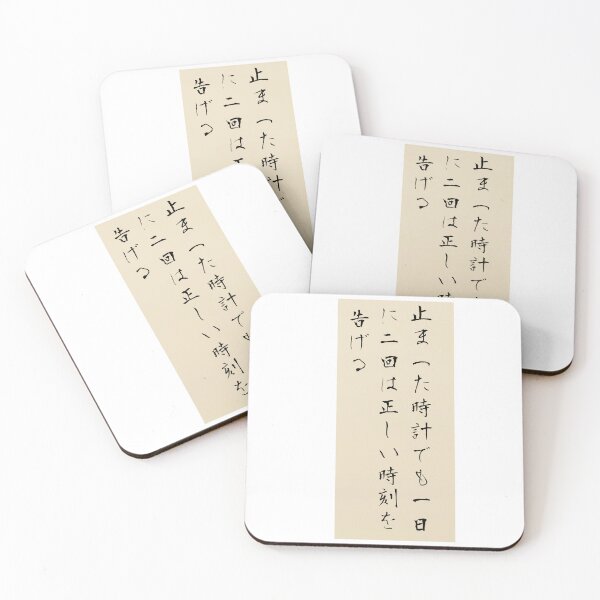 止まった時計で
に二回は正
告げる
止まった時計で
に二回は正しい時
告げる
止まった時計でも
に二回は正しい時刻を
告げる
止まった時計でも一日
に二回は正しい時刻を
告げる